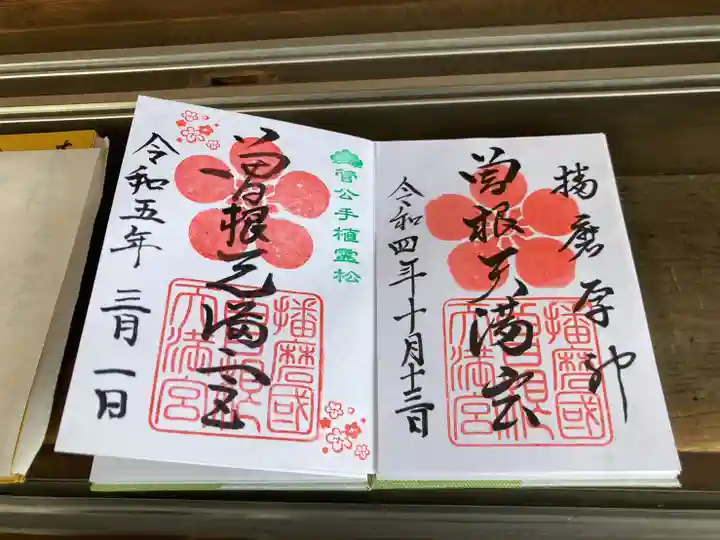 播磨学神
曽根天満宮
播磨國
曽根
天満宮
令和四年十月十三日
菅公手植霊松
曽根天満宮
播磨國
曽根
天満宮
令和五年 三月一日